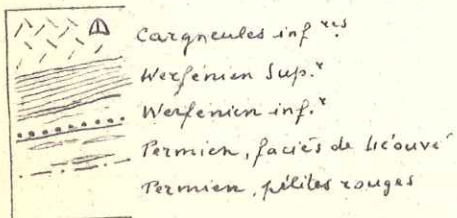 Cargneules inf.res
Werfénien Sup.r
Werfenien inf.r
Permien, faciès de
Permien, pélites rouges